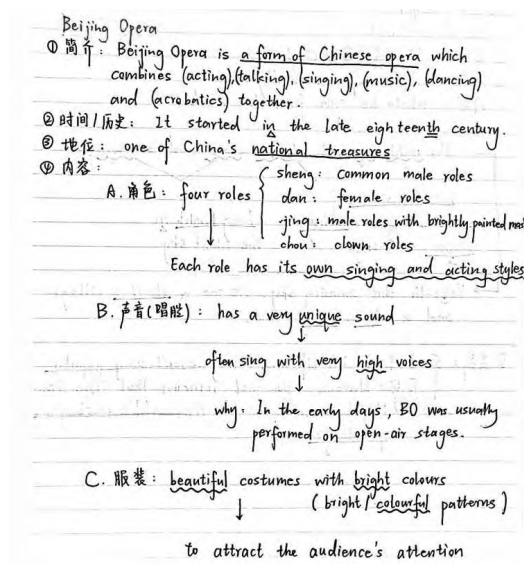 Beijing Opera
① 简介: Beijing Opera is a form of Chinese opera which
combines (acting),(talking), (singing), (music), (dancing)
and (acrobatics) together.
② 时间/历史: It started in the late eighteenth century.
③ 地位: one of China's national treasures
④ 内容:
sheng: common male roles
A. 角色: four roles
dan: female roles
jing: male roles with brightly painted
chou: clown roles
Each role has its own singing and acting styles
B. 声音(唱腔): has a very unique sound
often sing with very high voices
why: In the early days, BO was usually
performed on open-air stages.
C. 服装: beautiful costumes with bright colours
(bright/colourful patterns)
to attract the audience's attention